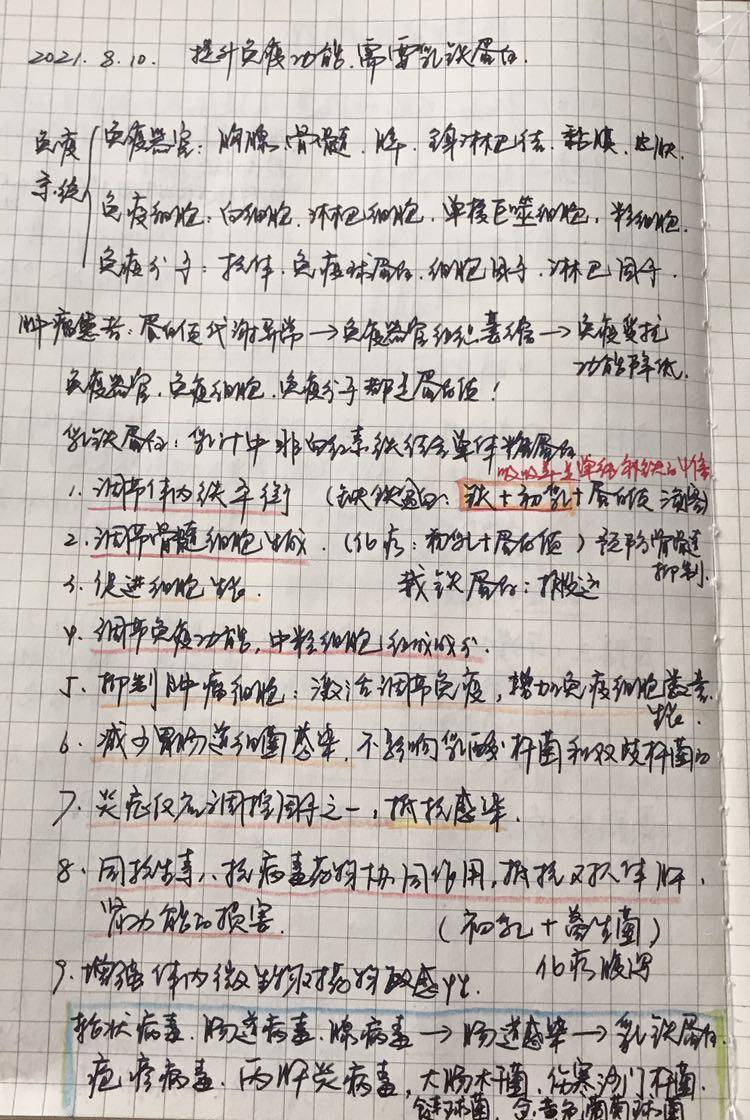 2021. 8.10. 提升免疫功能.需要乳铁蛋白.
免疫系统
免疫器官：胸腺.骨髓.脾.淋巴结.黏膜.皮肤.
免疫细胞：白细胞.淋巴细胞.单核巨噬细胞.粒细胞.
免疫分子：抗体.免疫球蛋白.细胞因子.淋巴因子.
肿瘤患者：蛋白质代谢异常→免疫器官组织萎缩→免疫抵抗
功能降低.
免疫器官.免疫细胞.免疫分子都是蛋白质！
乳铁蛋白：乳汁中非血红素铁结合单体糖蛋白
1.调节体内铁平衡 (缺铁贫血：铁+初乳+蛋白质
2.调节骨髓细胞生成.(化疗：初乳+蛋白质) 骨髓
抑制.
3.促进细胞生长. 载铁蛋白：搬运
4.调节免疫功能,中粒细胞组成成分.
5.抑制肿瘤细胞：激活调节免疫,增加免疫细胞
生长.
6.减少胃肠道细菌感染.不影响乳酸杆菌和双歧杆菌的
7.炎症反应调控因子之一,抵抗感染.
8.同抗生素、抗病毒药物协同作用,抵抗对人体肝、
肾功能的损害. (初乳+益生菌)
9.增强体内微生物对药物敏感性. 化疗腹泻
轮状病毒.肠道病毒.腺病毒→肠道感染→乳铁蛋白.
疱疹病毒.丙肝炎病毒,大肠杆菌.伤寒沙门杆菌.
链球菌.金黄色葡萄球菌